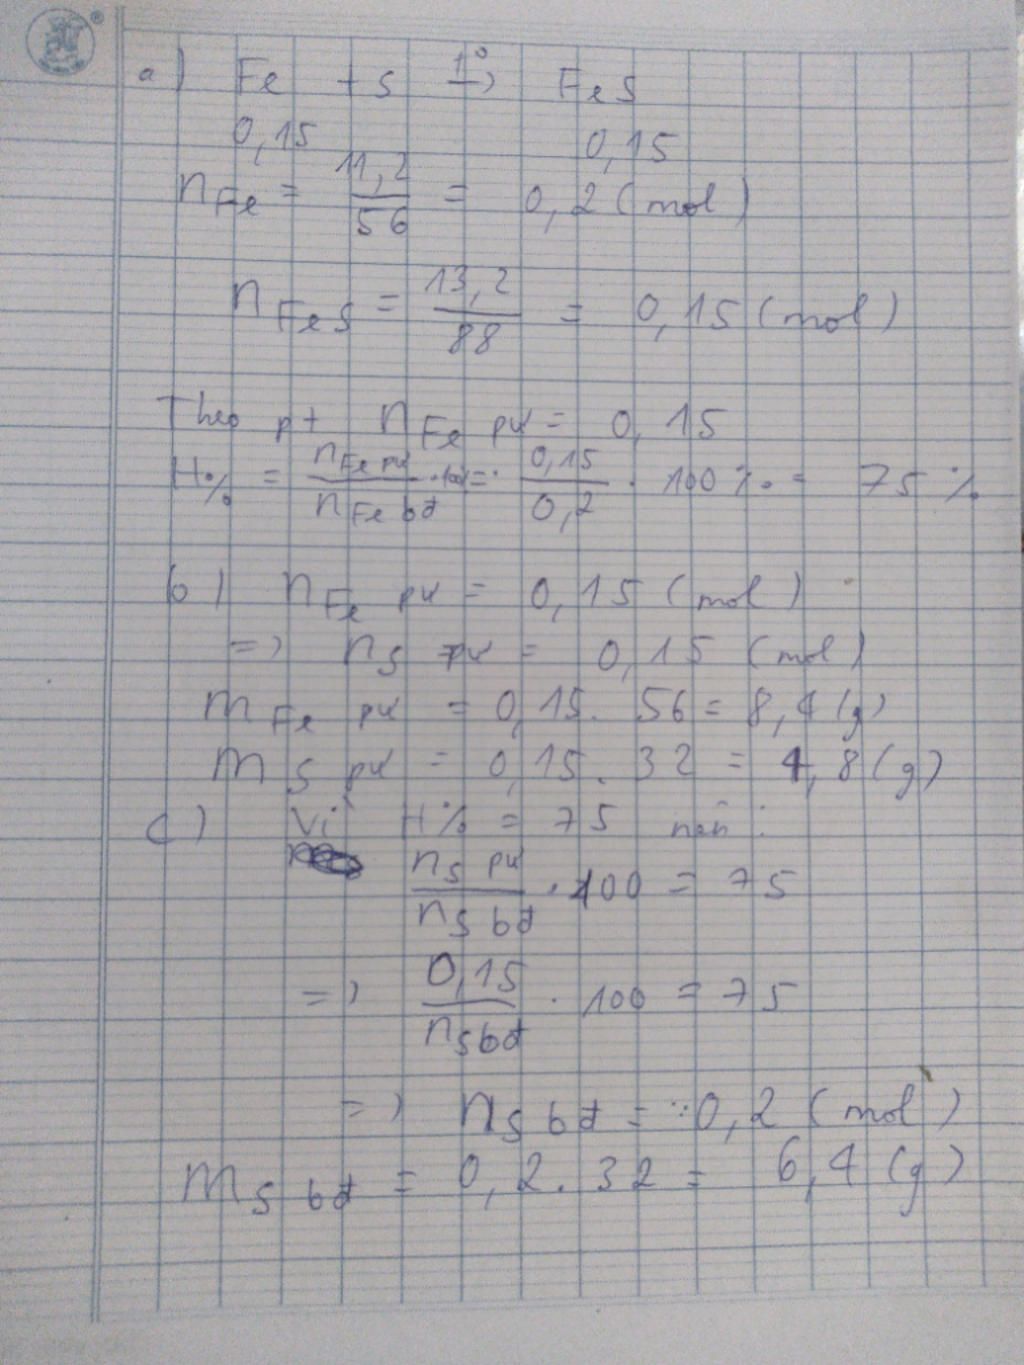 a) Fe + S t°→ FeS
0,15 0,15
nFe = 11,2/56 = 0,2 (mol)
nFeS = 13,2/88 = 0,15 (mol)
Theo pt nFe pư = 0,15
H% = nFe pư/nFe bđ . 100 = 0,15/0,2 . 100% = 75%
b) nFe pư = 0,15 (mol)
=> nS pư = 0,15 (mol)
mFe pư = 0,15. 56 = 8,4 (g)
mS pư = 0,15. 32 = 4,8 (g)
c) Vì H% = 75 nên :
nS pư/nS bđ . 100 = 75
=> 0,15/nS bđ . 100 = 75
=> nS bđ = 0,2 (mol)
mS bđ = 0,2. 32 = 6,4 (g)